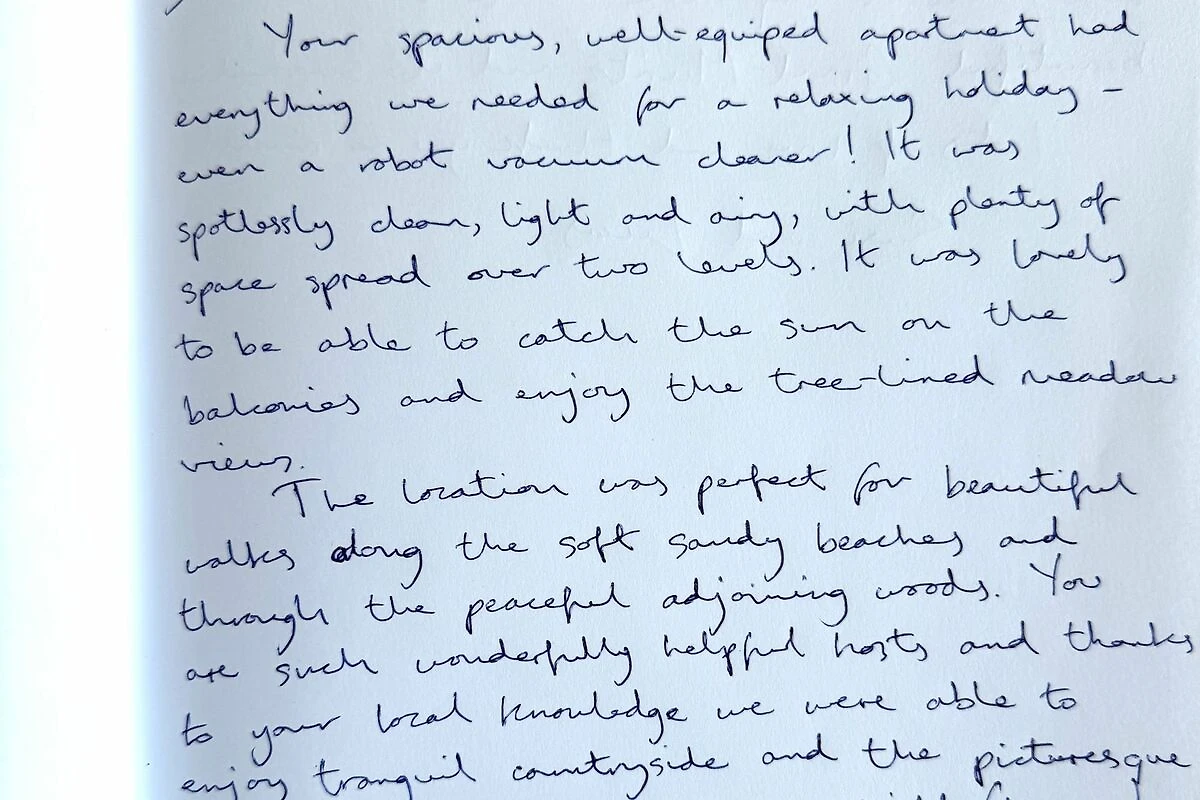 Your spacious, well-equiped apartment had
everything we needed for a relaxing holiday –
even a robot vacuum cleaner! It was
spotlessly clean, light and airy, with plenty of
space spread over two levels. It was lovely
to be able to catch the sun on the
balconies and enjoy the tree-lined meadow
views.
The location was perfect for beautiful
walks along the soft sandy beaches and
through the peaceful adjoining woods. You
are such wonderfully helpful hosts and thanks
to your local knowledge we were able to
enjoy tranquil countryside and the picturesque